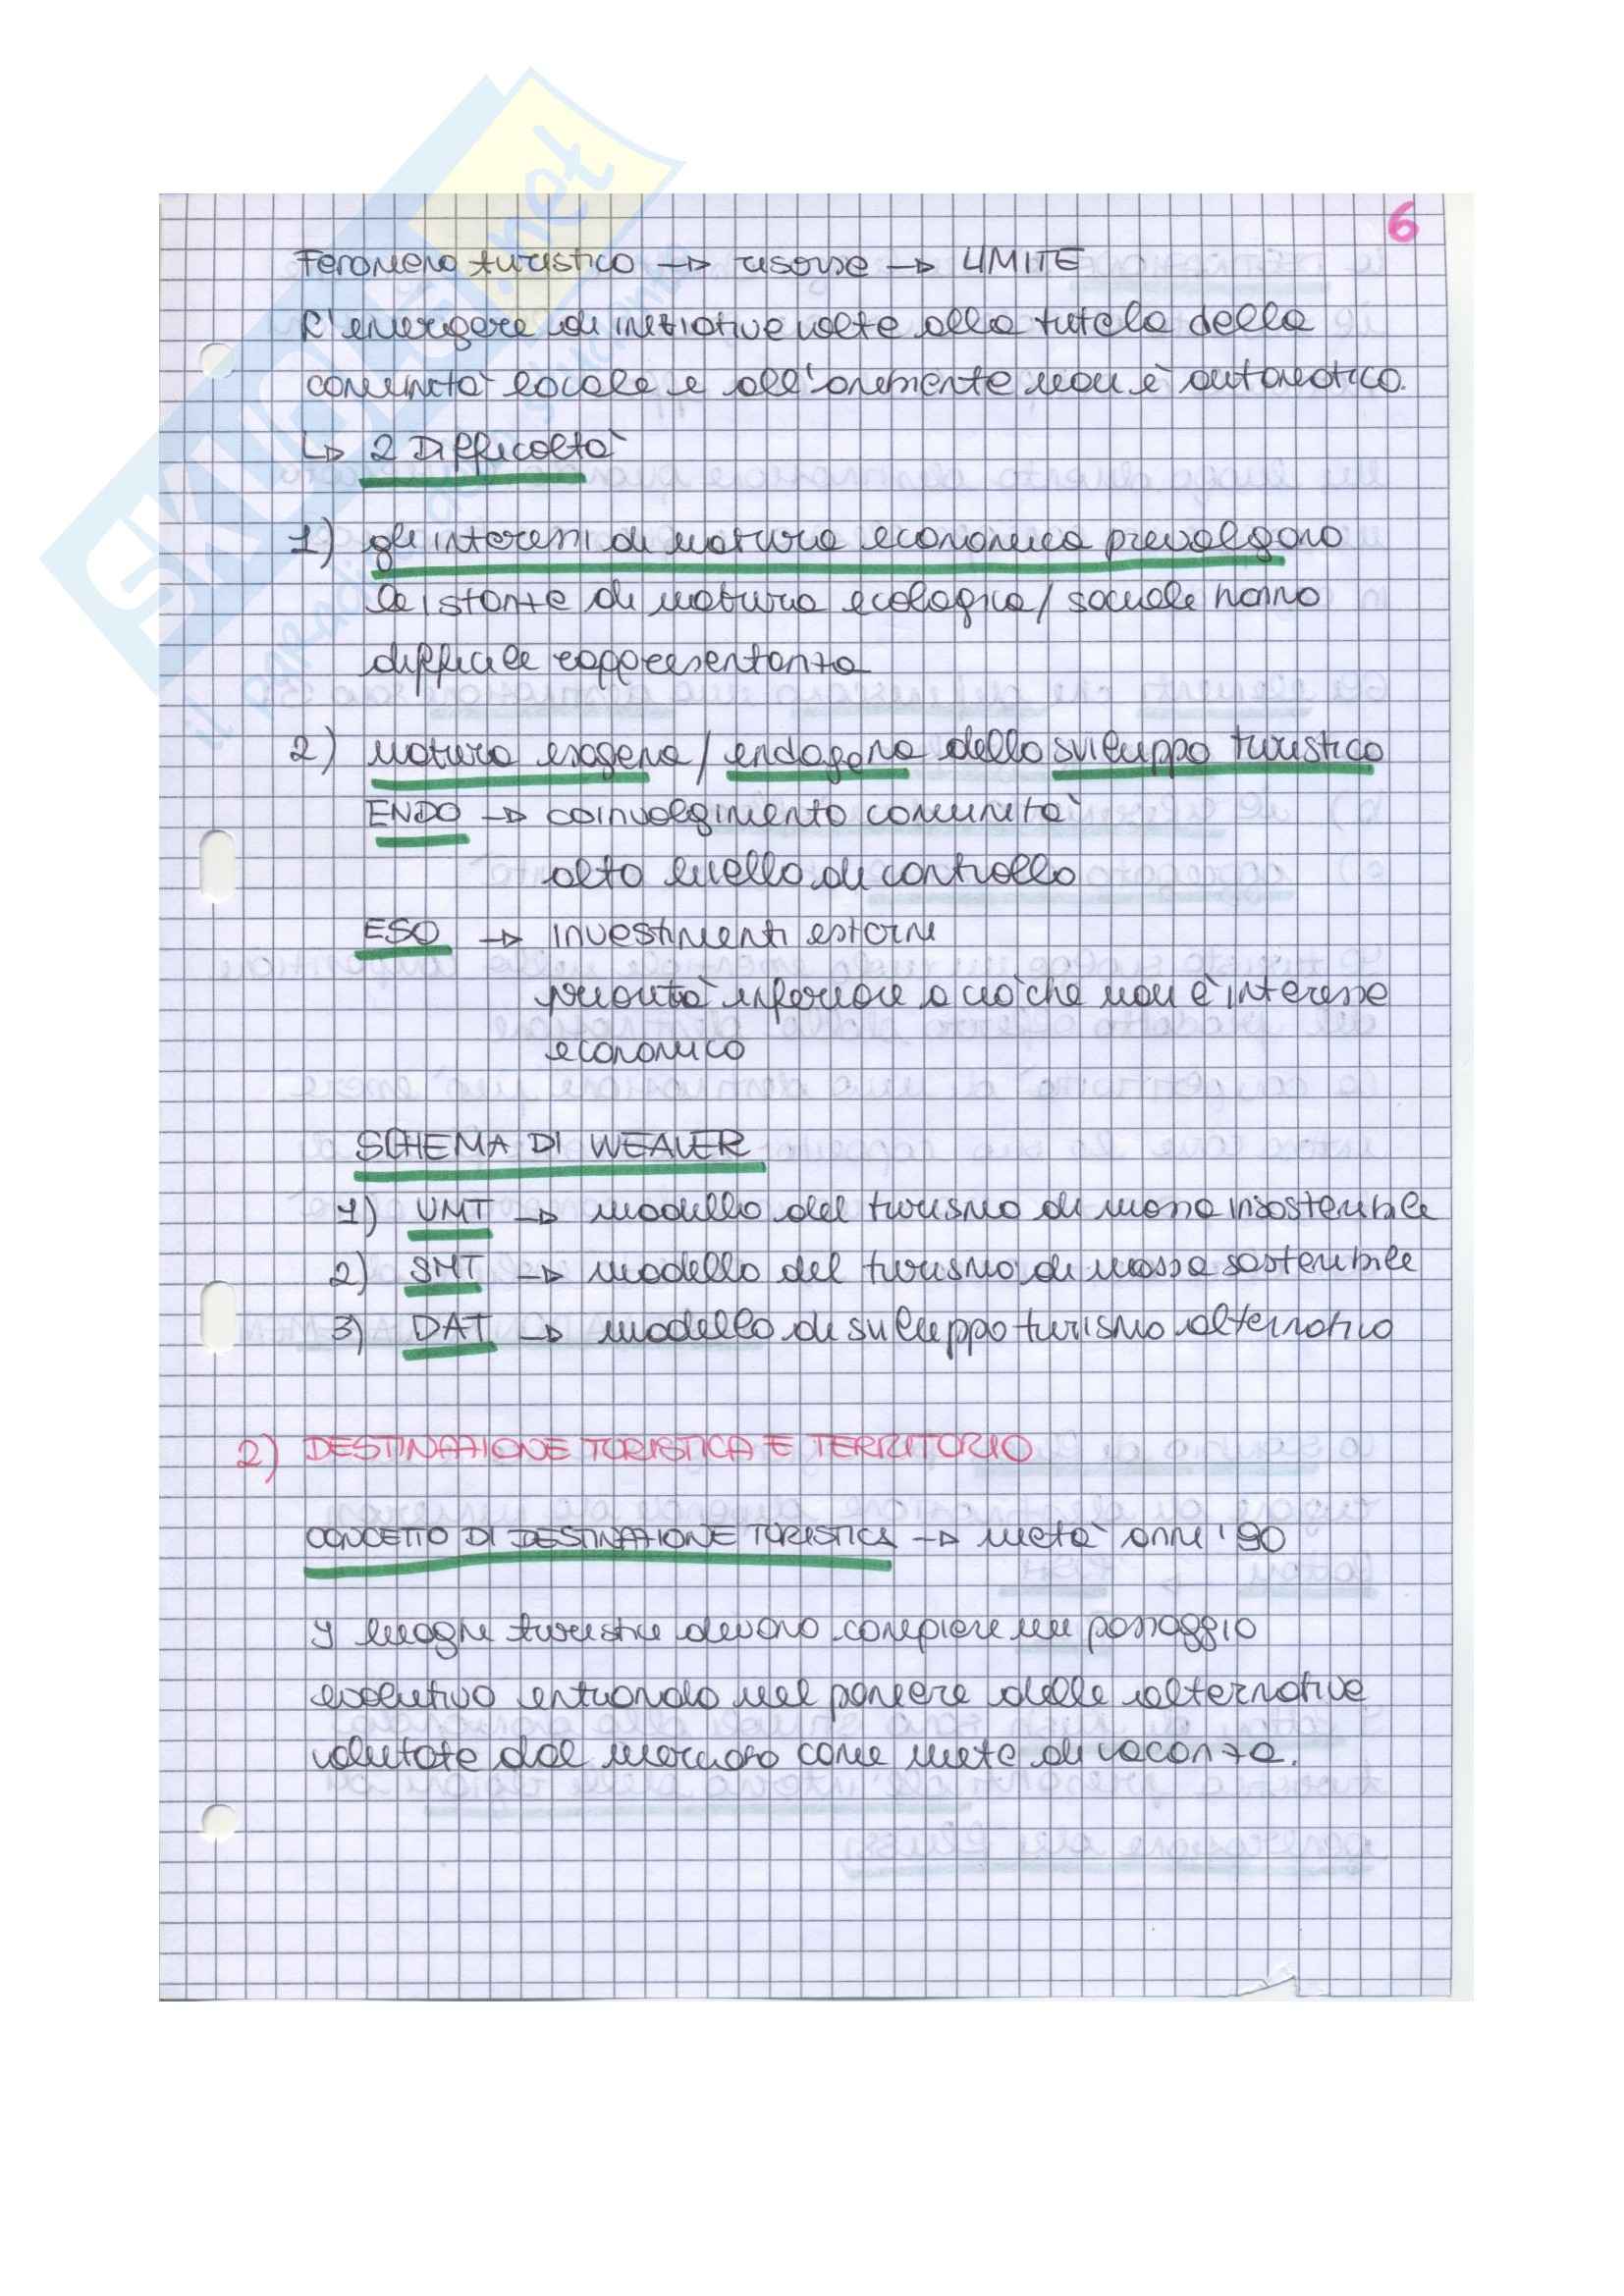 6
Fenomeno turistico → risorse → LIMITE
L'emergere di iniziative volte alla tutela della
comunità locale e all'ambiente non è automatico.
↳ 2 Difficoltà
1) gli interessi di natura economica prevalgono
le istanze di natura ecologica / sociale hanno
difficile rappresentanza
2) natura esogena / endogena dello sviluppo turistico
ENDO → coinvolgimento comunità
alto livello di controllo
ESO → investimenti esterni
priorità inferiore a ciò che non è interesse
economico
SCHEMA DI WEAVER
1) UMT → modello del turismo di massa insostenibile
2) SMT → modello del turismo di massa sostenibile
3) DAT → modello di sviluppo turismo alternativo
2) DESTINAZIONE TURISTICA E TERRITORIO
CONCETTO DI DESTINAZIONE TURISTICA → metà anni '90
I luoghi turistici devono compiere un passaggio
evolutivo entrando nel paniere delle alternative
valutate dal mercato come mete di vacanza.
SKUOLA.net